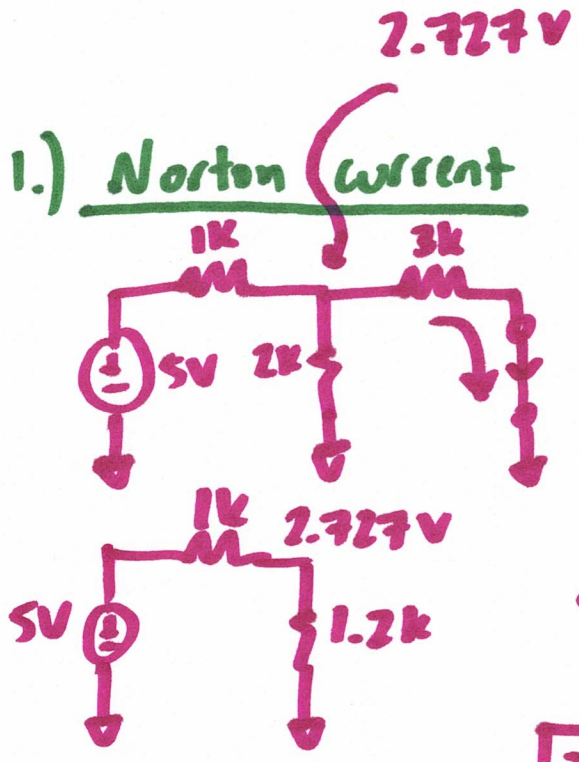 2.727V
1.) Norton Current
1K 3k
5V 2k
1K 2.727V
5V 1.2k